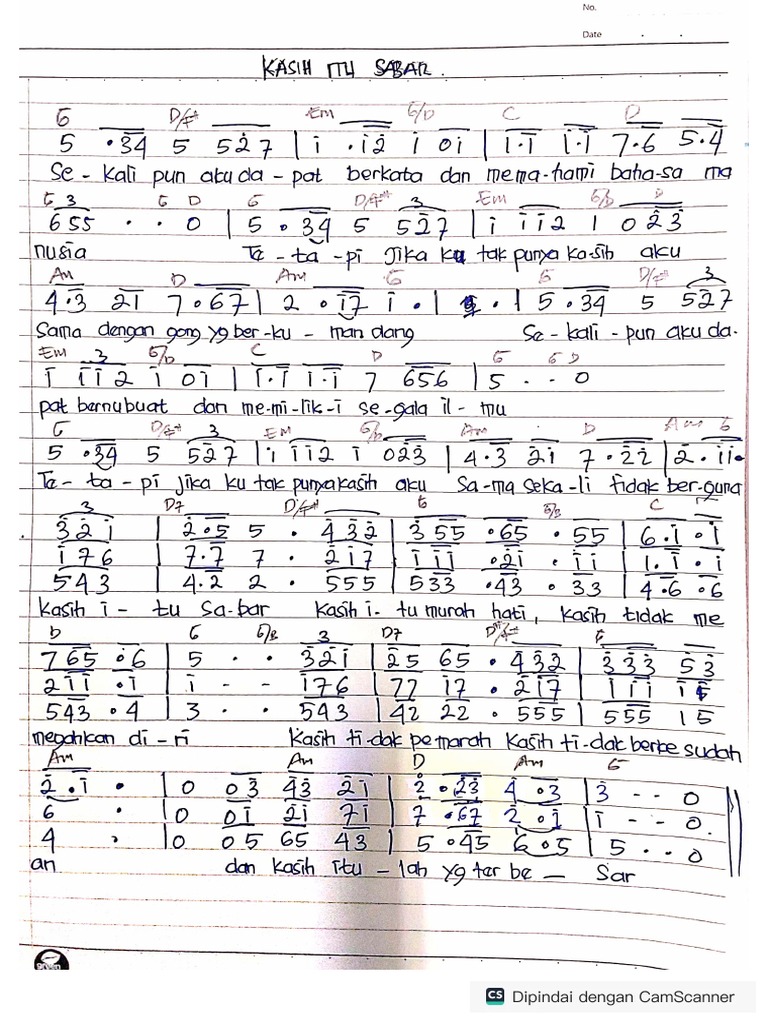 No.
Date
KASIH ITU SABAR.
G D/F# Em G/D C D
5 .34 5 527 | i .i2 i 0i | i.i i.i 7.6 5.4
Se - kali pun aku da - pat berkata dan mema-hami baha-sa ma
G 3 G D G D/F# 3 Em G/D D
655 . . 0 | 5 . 34 5 527 | i ii2 1 023
nusia Te - ta - pi Jika ku tak punya ka-sih aku
Am D Am G G D/F# 3
4.3 21 7.67 | 2 . i7 i . | . | 5 .34 5 527
Sama dengan gong yg ber-ku - man dang Se - kali - pun aku da.
Em 3 G/D C D G G D
i ii2 i 0i | i.i i.i 7 656 | 5 . . 0
pat bernubuat dan me-mi-lik-i se-gala il - mu
G D/F# 3 Em G/D Am D Am G
5 .34 5 527 | i ii2 i 023 | 4.3 2i 7 .22 | 2.ii.
Te - ta - pi jika ku tak punya kasih aku Sa-ma seka-li tidak ber-guna
3 D7 D/F# G G/B C
32i | 2.5 5 . 432 | 355 .65 . 55 | 6.i .i
i76 | 7.7 7 . 2i7 | iii .2i . ii | i.i . i
543 | 4.2 2 . 555 | 533 .43 . 33 | 4.6 .6
Kasih i - tu Sa-bar Kasih i- tu murah hati, kasih tidak me
D G G/B 3 D7 D/F# G
765 .6 | 5 . . 32i | 25 65 . 432 | 333 53
2ii .i | i - - i76 | 77 i7 . 2i7 | iii i5
543 .4 | 3 . . 543 | 42 22 . 555 | 555 15
megahkan di - ri Kasih ti-dak pemarah Kasih ti-dak berke sudah
Am Am D Am G
2.i . | 0 03 43 2i | 2 .23 4 .3 | 3 - - 0
6 . | 0 0i 2i 7i | 7 .67 2.i | i - - 0.
4 . | 0 05 65 43 | 5 .45 6.5 | 5 . . 0
an dan kasih itu - lah yg ter be - Sar
CS Dipindai dengan CamScanner